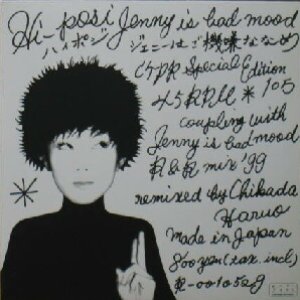 Hi-posi Jenny is bad mood
ハイポジ ジェニーはご機嫌ななめ
Special Edition
45RPM * 105
coupling with
Jenny is bad mood
mix '99
remixed by Chikada
Haruo
made in Japan
800yen (tax. incl)